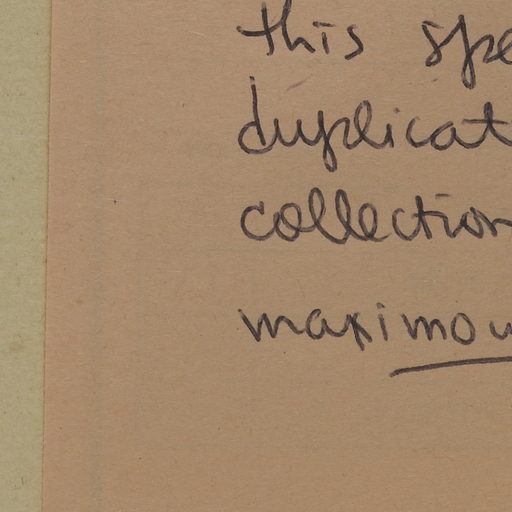 this spe
duplicat
collection
maximou